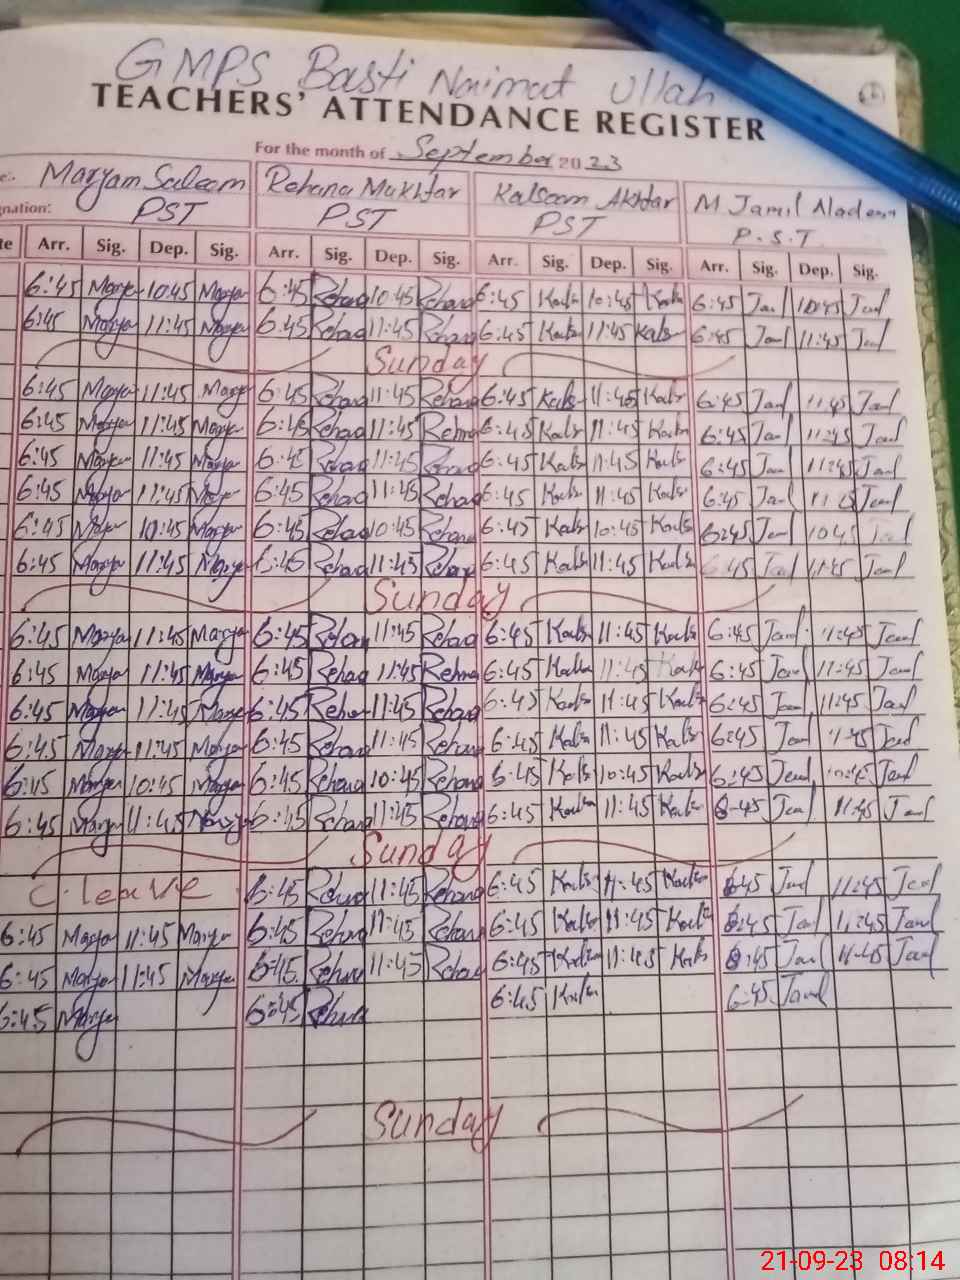 GMPS Basti Naimat Ullah
TEACHERS' ATTENDANCE REGISTER
For the month of September 2023
Maryam Saleem Rehana Mukhtar Kalsoom Akhtar M Jamil
gnation: PST PST PST P.S.T
te Arr. Sig. Dep. Sig. Arr. Sig. Dep. Sig. Arr. Sig. Dep. Sig. Arr. Sig. Dep. Sig.
6:45 Marya 10:45 Marya 6:45 Rehana 10:45 Rehana 6:45 Kals 10:45 Kals 6:45 Jaml 10:45 Jaml
6:45 Marya 11:45 Marya 6:45 Rehana 11:45 Rehana 6:45 Kals 11:45 Kals 6:45 Jaml 11:45 Jaml
Sunday
6:45 Marya 11:45 Marya 6:45 Rehana 11:45 Rehana 6:45 Kals 11:45 Kals 6:45 Jaml 11:45 Jaml
6:45 Marya 11:45 Marya 6:45 Rehana 11:45 Rehana 6:45 Kals 11:45 Kals 6:45 Jaml 11:45 Jaml
6:45 Marya 11:45 Marya 6:45 Rehana 11:45 Rehana 6:45 Kals 11:45 Kals 6:45 Jaml 11:45 Jaml
6:45 Marya 11:45 Marya 6:45 Rehana 11:45 Rehana 6:45 Kals 11:45 Kals 6:45 Jaml 11:45 Jaml
6:45 Marya 10:45 Marya 6:45 Rehana 10:45 Rehana 6:45 Kals 10:45 Kals 6:45 Jaml 10:45
6:45 Marya 11:45 Marya 6:45 Rehana 11:45 Rehana 6:45 Kals 11:45 Kals 6:45 Jaml 11:45 Jaml
Sunday
6:45 Marya 11:45 Marya 6:45 Rehana 11:45 Rehana 6:45 Kals 11:45 Kals 6:45 Jaml 11:45 Jaml
6:45 Marya 11:45 Marya 6:45 Rehana 11:45 Rehana 6:45 Kals 11:45 Kals 6:45 Jaml 11:45 Jaml
6:45 Marya 11:45 Marya 6:45 Rehana 11:45 Rehana 6:45 Kals 11:45 Kals 6:45 Jaml 11:45 Jaml
6:45 Marya 11:45 Marya 6:45 Rehana 11:45 Rehana 6:45 Kals 11:45 Kals 6:45 Jaml 11:45 Jaml
6:45 Marya 10:45 Marya 6:45 Rehana 10:45 Rehana 6:45 Kals 10:45 Kals 6:45 Jaml 10:45 Jaml
6:45 Marya 11:45 Marya 6:45 Rehana 11:45 Rehana 6:45 Kals 11:45 Kals 6:45 Jaml 11:45 Jaml
Sunday
C. leave 6:45 Rehana 11:45 Rehana 6:45 Kals 11:45 Kals 6:45 Jaml 11:45 Jaml
6:45 Marya 11:45 Marya 6:45 Rehana 11:45 Rehana 6:45 Kals 11:45 Kals 6:45 Jaml 11:45 Jaml
6:45 Marya 11:45 Marya 6:45 Rehana 11:45 Rehana 6:45 Kals 11:45 Kals 6:45 Jaml 11:45 Jaml
6:45 Marya 6:45 Rehana 6:45 Kals 6:45 Jaml
Sunday
21-09-23 08:14